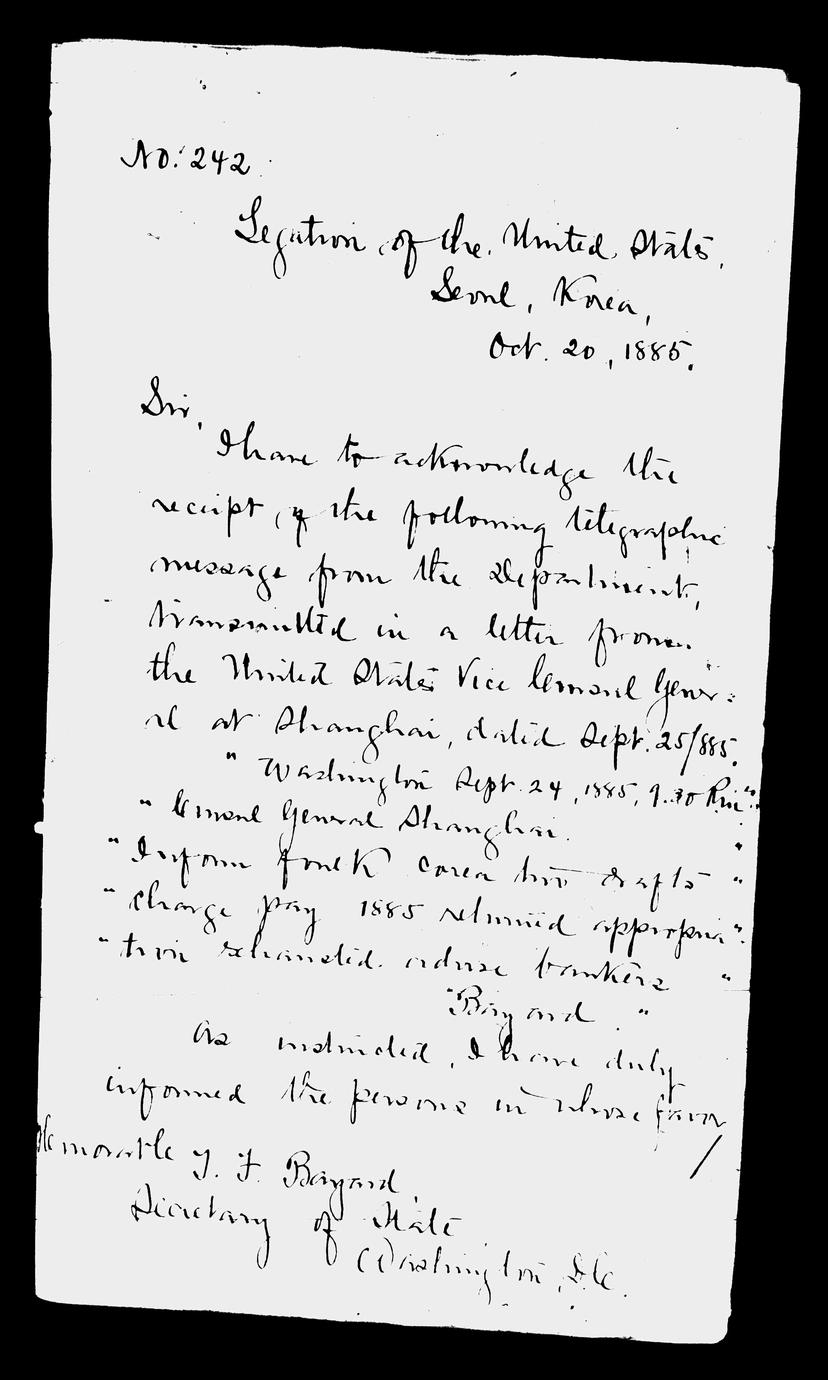 No. 242
Legation of the United States,
Seoul, Korea,
Oct. 20, 1885.
Sir,
I have to acknowledge the
receipt of the following telegraphic
message from the Department,
transmitted in a letter from
the United States Vice Consul Gener-
al at Shanghai, dated Sept. 25/885.
" Washington Sept. 24, 1885, 9.30 P.M. "
" Consul General Shanghai. "
" Inform Foulk Corea two drafts "
" charge pay 1885 returned appropria- "
" tion exhausted. advise bankers "
"Bayard."
As instructed, I have duly
informed the persons in whose favor
/
Honorable T. F. Bayard,
Secretary of State
Washington, D.C.